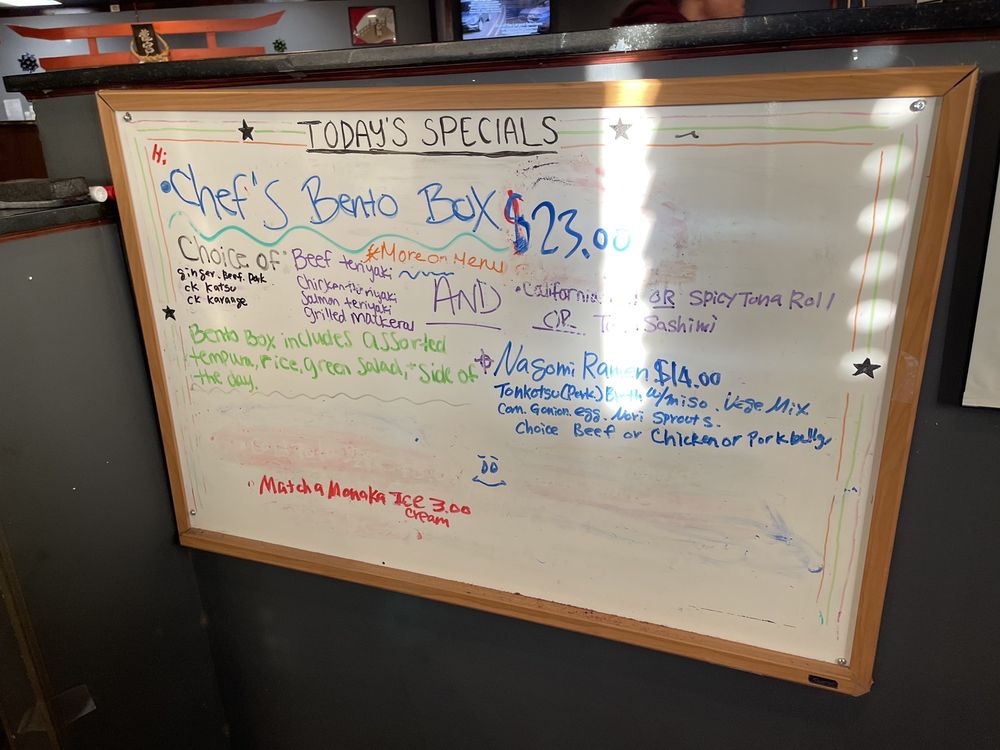 TODAY'S SPECIALS
Hi
• Chef's Bento Box $23.00
*More on Menu
Choice of
ginger. Beef. Pork
ck Katsu
ck Karaage
Beef teriyaki
Chicken teriyaki
Salmon teriyaki
Grilled Mackeral
AND
• California OR Spicy Tuna Roll
OR Sashimi
Bento Box includes assorted
tempura, rice, green salad, "Side of
the day.
Nagomi Ramen $14.00
Tonkotsu (Pork) Broth w/miso. Vege Mix
Corn. G onion. egg. Nori Sprouts.
Choice Beef or Chicken or Pork belly
Matcha Monaka Ice 3.00
cream